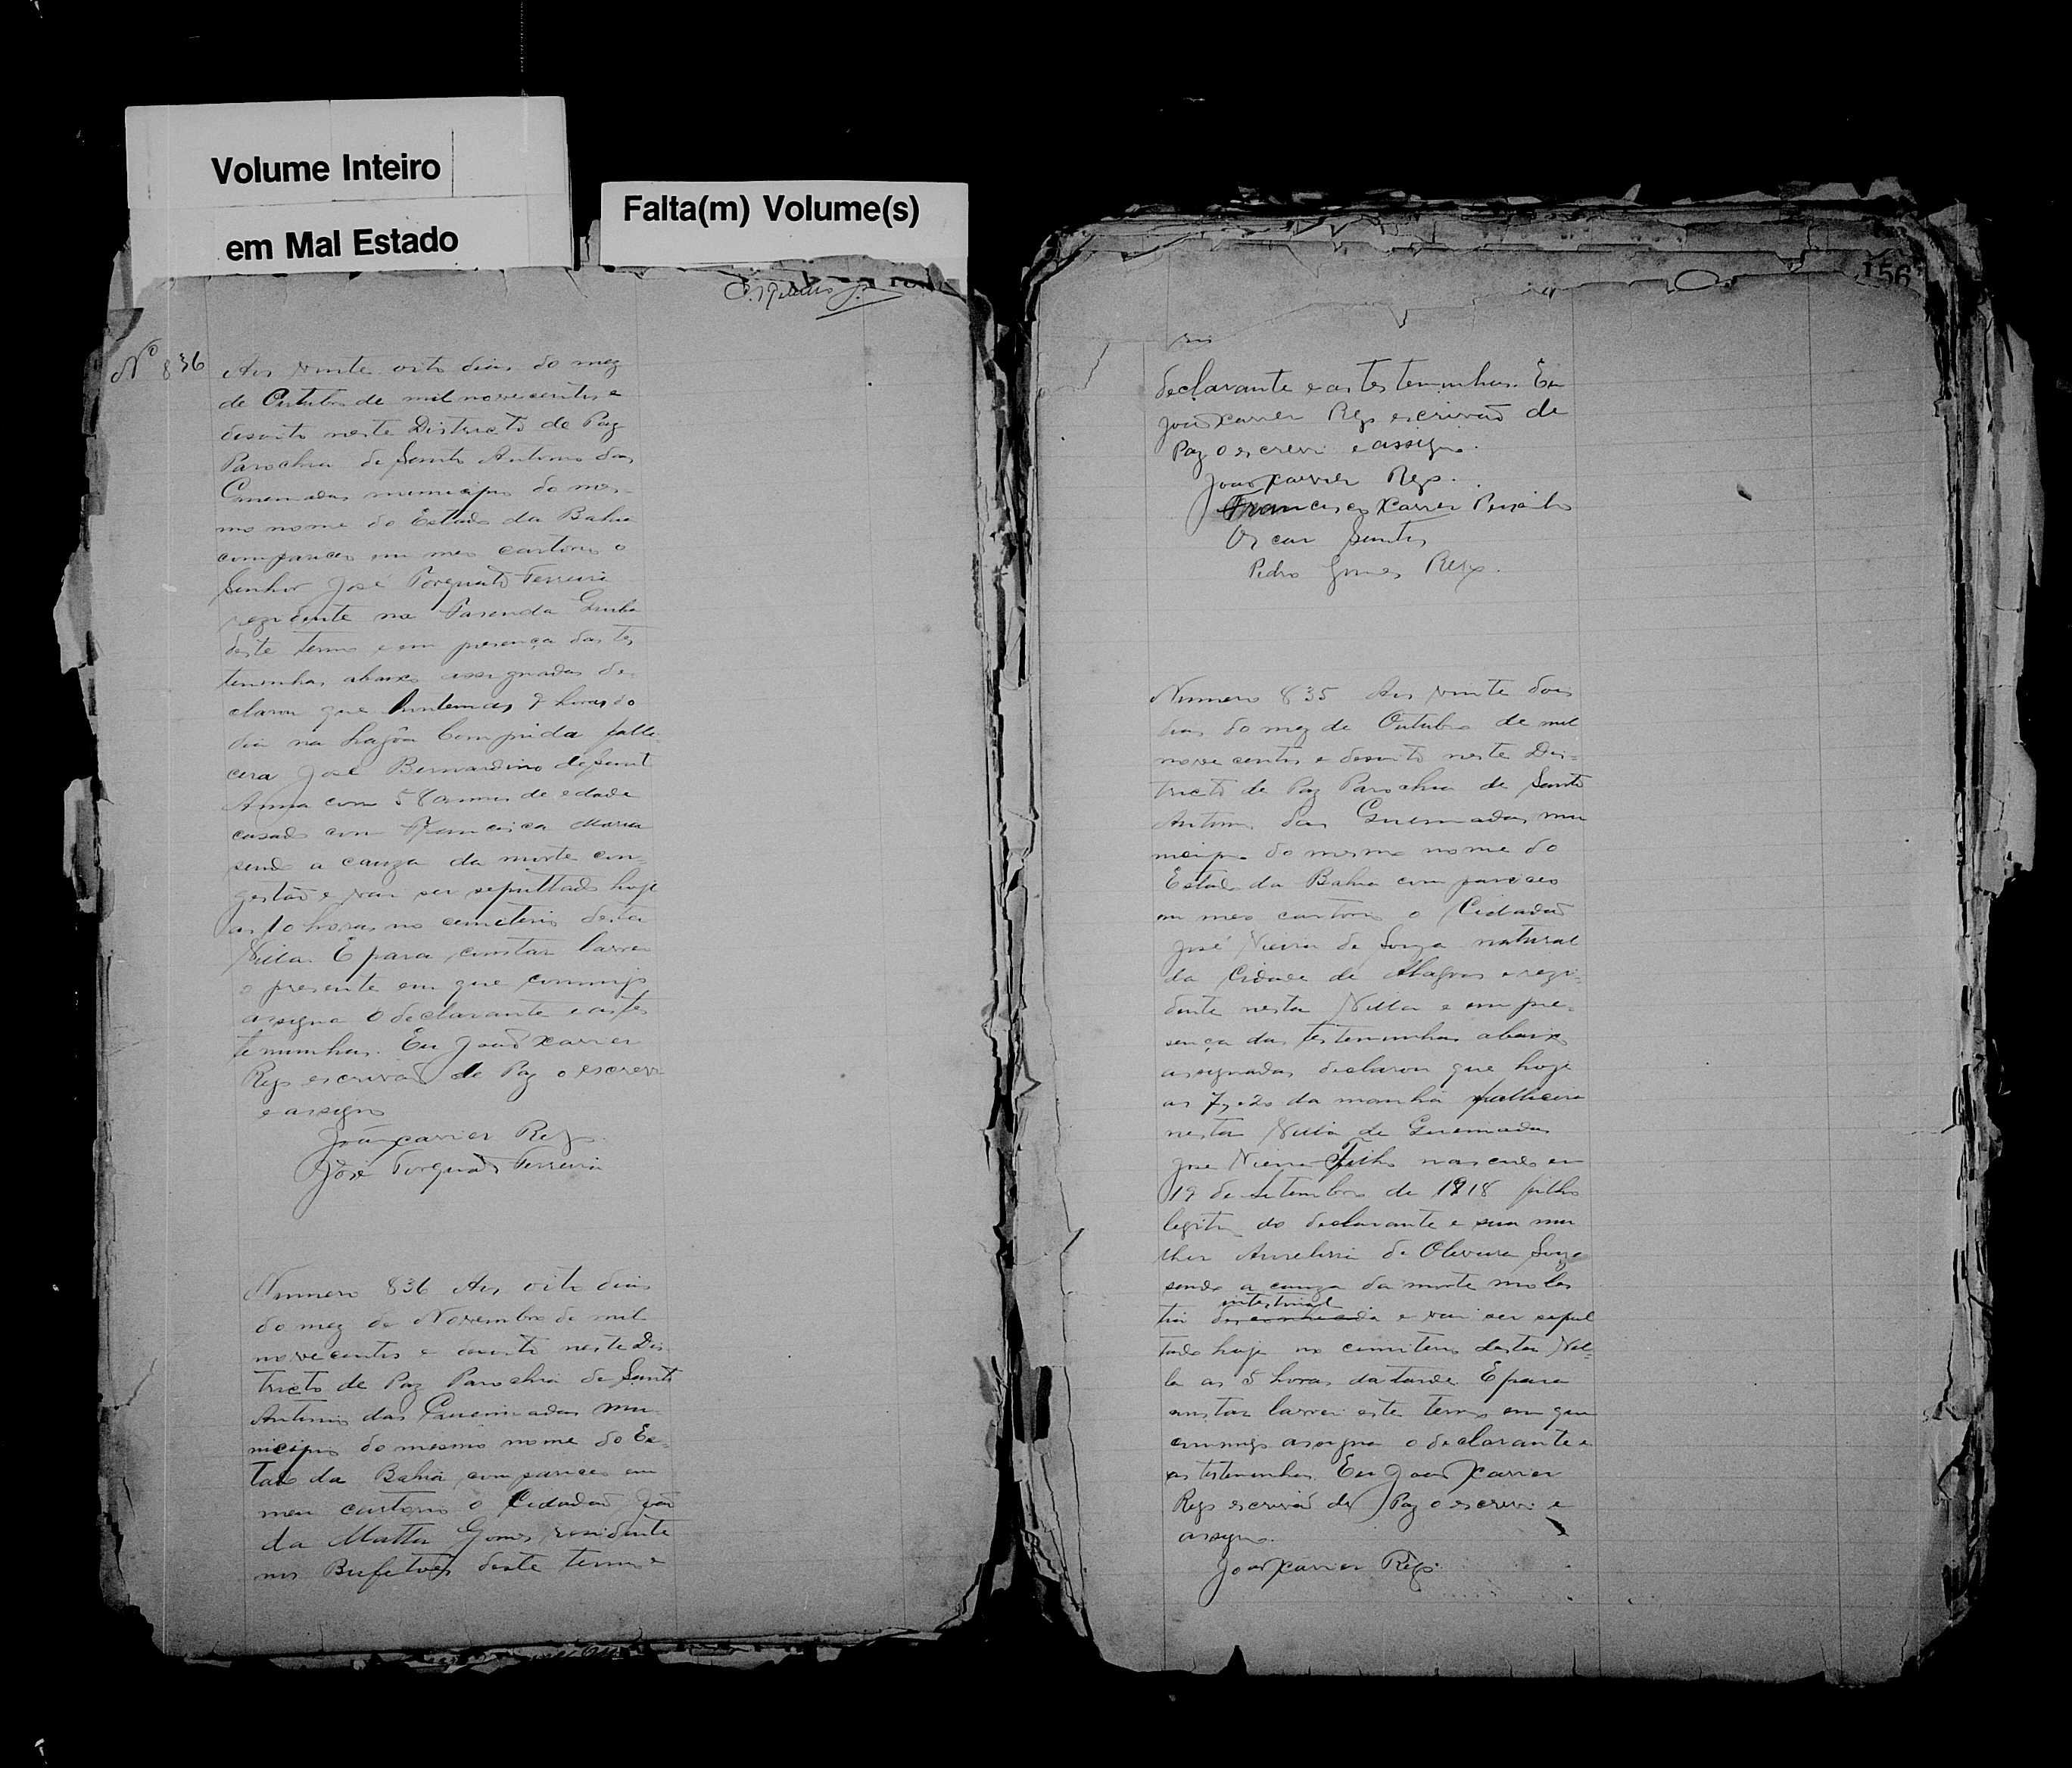 Volume Inteiro
em Mal Estado
Falta(m) Volume(s)
Nº 836
Aos vinte oito dias do mez
de Outubro de mil novecentos e
desoito neste Districto de Paz
Parochia de Santo Antonio das
Queimadas municipio do mes-
mo nome do Estado da Bahia
compareceo em meo cartorio o
Senhor José Torquato Ferreira
rezidente na Fazenda
deste termo e em presença das tes
temunhas abaixo assignadas de-
clarou que hontem as 7 horas do
dia na Lagôa Comprida falle-
cera José Bernardino de Sant
Anna com 58 annos de edade
casado com Francisca Maria
sendo a cauza da morte con-
gestão e vai ser sepultado hoje
as 10 horas no cemiterio desta
Villa. E para constar lavrei
o presente em que commigo
assigna o declarante e as tes
temunhas. Eu João Xavier
Rego escrivão de Paz o escrevi
e assigno
João Xavier Rego
José Torquato Ferreira
Numero 836 Aos oito dias
do mez de Novembro de mil
novecentos e desoito neste Dis-
tricto de Paz Parochia de Santo
Antonio das Queimadas mu-
nicipio do mesmo nome do Es-
tado da Bahia compareceo em
meu cartorio o Cidadão João
da Matta Gomes, residente
nos deste termo e
156
declarante e as testemunhas. Eu
João Xavier Rego escrivão de
Paz o escrevi e assigno.
João Xavier Rego.
Francisco Xavier Peixinho
Oscar Santos
Pedro Gomes Rego.
Numero 835 Aos vinte dois
dias do mez de Outubro de mil
novecentos e desoito neste Dis-
tricto de Paz Parochia de Santo
Antonio das Queimadas mu
nicipio do mesmo nome do
Estado da Bahia compareceo
em meo cartorio o Cidadão
José Vieira de Souza natural
da Cidade de Alagoas e rezi-
dente nesta Villa e em pre-
sença das testemunhas abaixo
assignadas declarou que hoje
as 7, e 20 da manhã fallecera
nesta Villa de Queimadas
José Vieira Filho nascido em
19 de Setembro de 1918 filho
legitimo do declarante e sua mu
lher Aurelina de Oliveira Souza
sendo a cauza da morte moles
intestinal
tia desconhecida e vai ser sepul
tado hoje no cemiterio desta Vil-
la as 5 horas da tarde. E para
constar lavrei este termo em que
commigo assigna o declarante e
as testemunhas. Eu João Xavier
Rego escrivão de Paz o escrevi e
assigno.
João Xavier Rego.